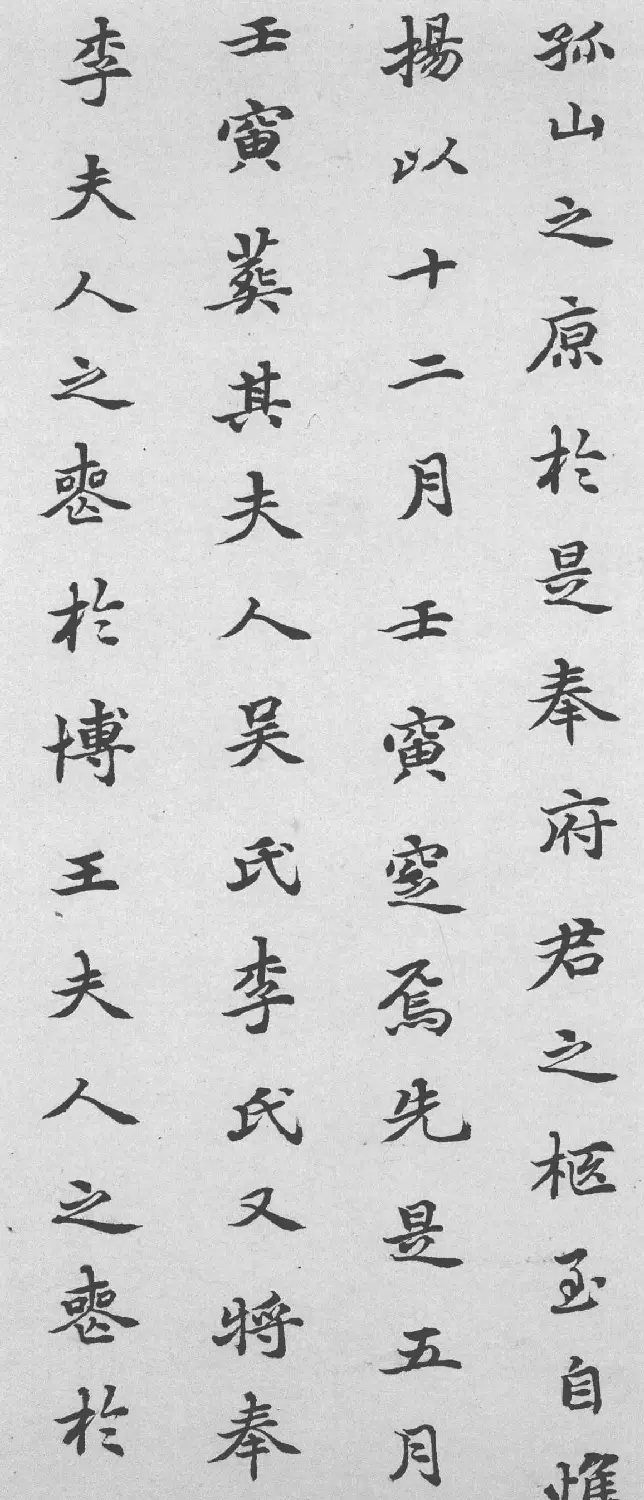 孤山之原於是奉府君之柩至自惟
揚以十二月壬寅窆焉先是五月
壬寅葬其夫人吴氏李氏又将奉
李夫人之丧於博王夫人之丧於